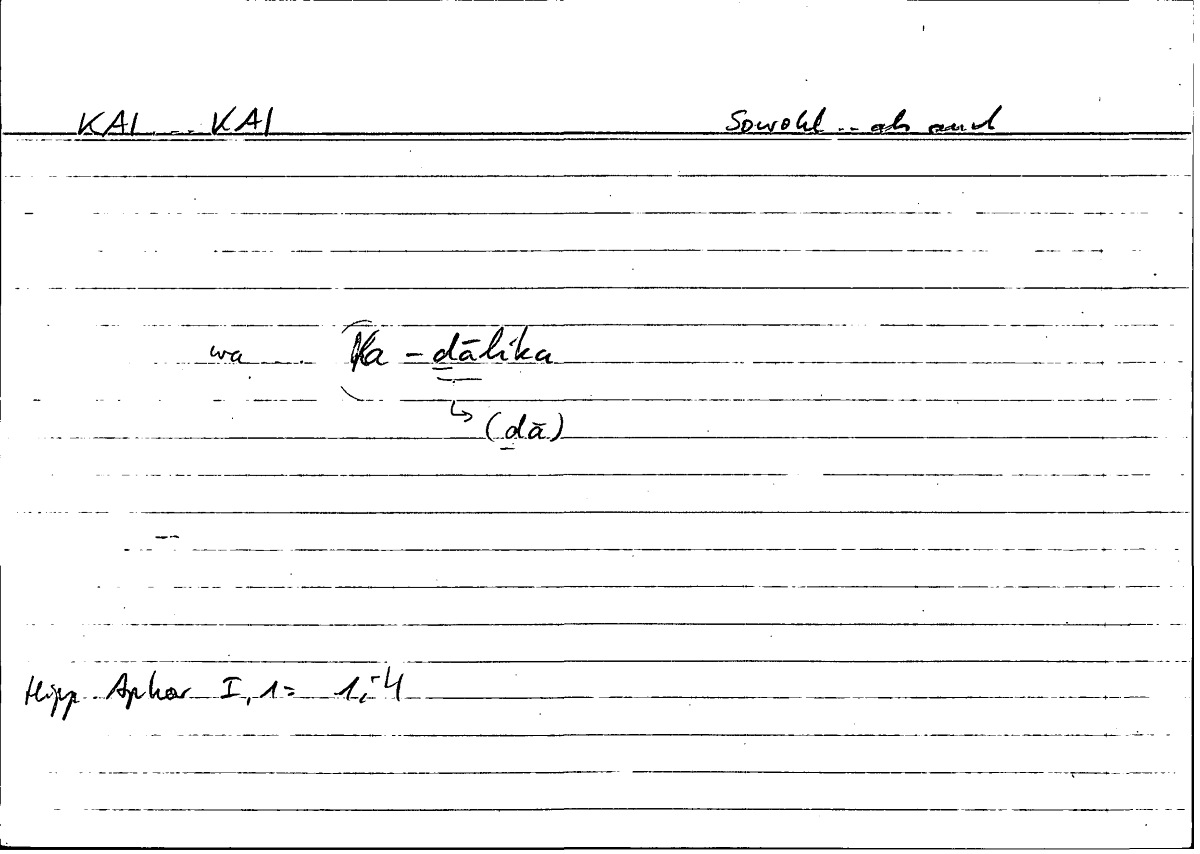 KAI ... KAI Sowohl .. als auch
wa .... Ka - ḏālika
↳ (ḏā)
Hipp. Aphor I, 1 = 1,-4